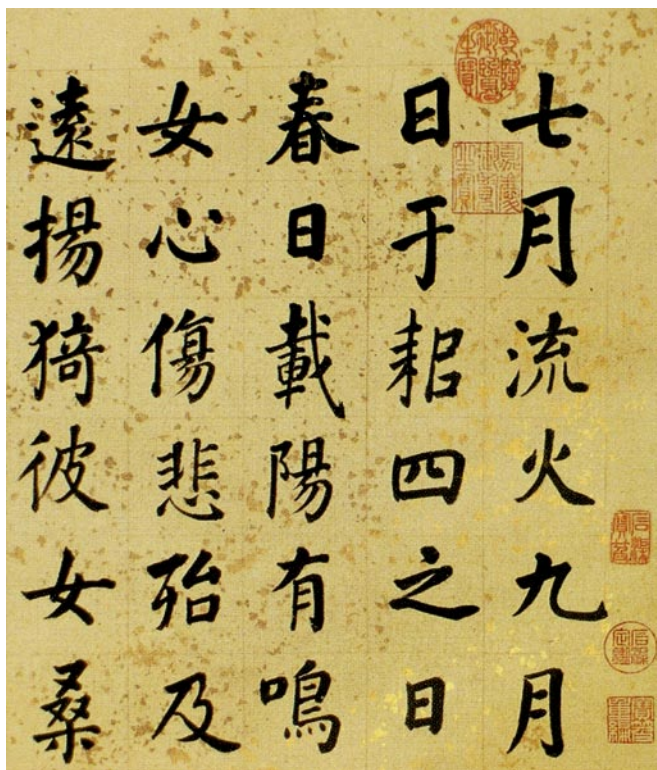 七月流火九月
日于耜四之日
春日載陽有鳴
女心傷悲殆及
遠揚猗彼女桑